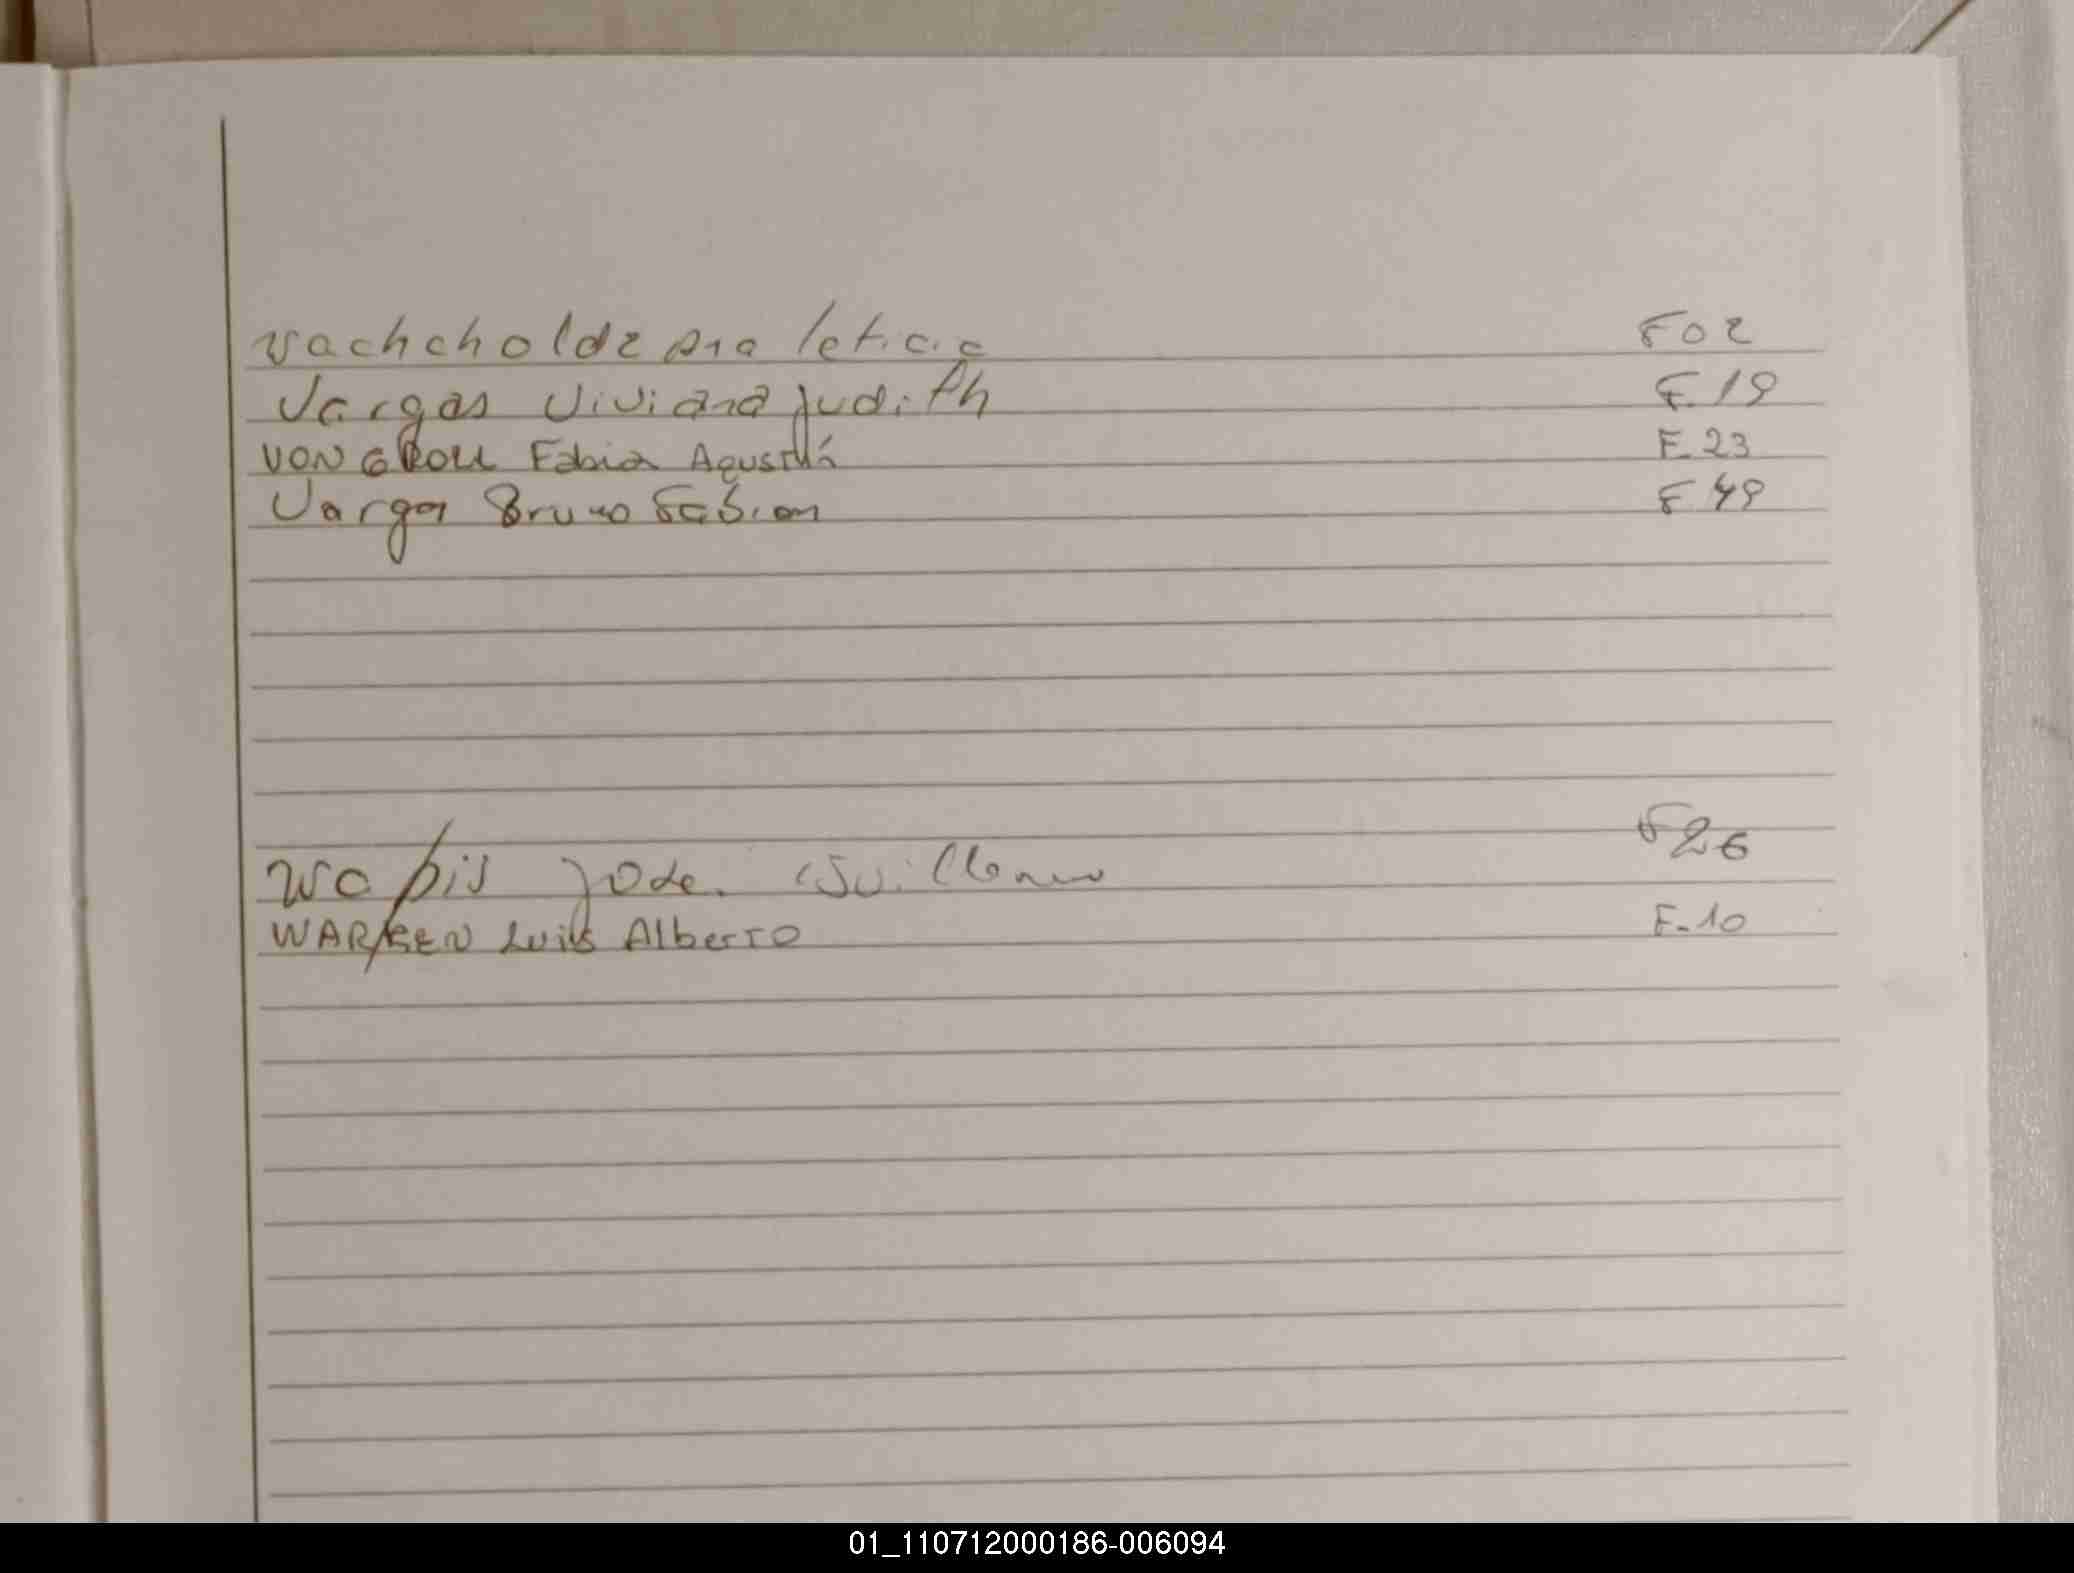 Vachcholdz Ana leticia F 02
Vargas Viviana judith F. 19
VON GROLL Fabia Agustiná F. 23
Vargas Bruno Fabian F 49
Wapis jose Guillermo F 26
WARKEN Luis Alberto F. 10
01_110712000186-006094